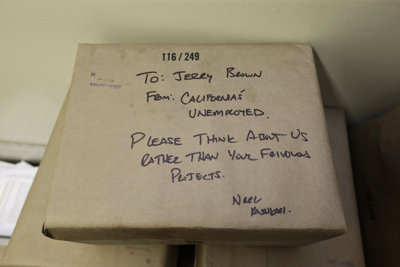 116 / 249
TO: JERRY BROWN
FROM: CALIFORNIAS'
UNEMPLOYED.
PLEASE THINK ABOUT US
RATHER THAN YOUR FRIVOLOUS
PROJECTS.
NEEL